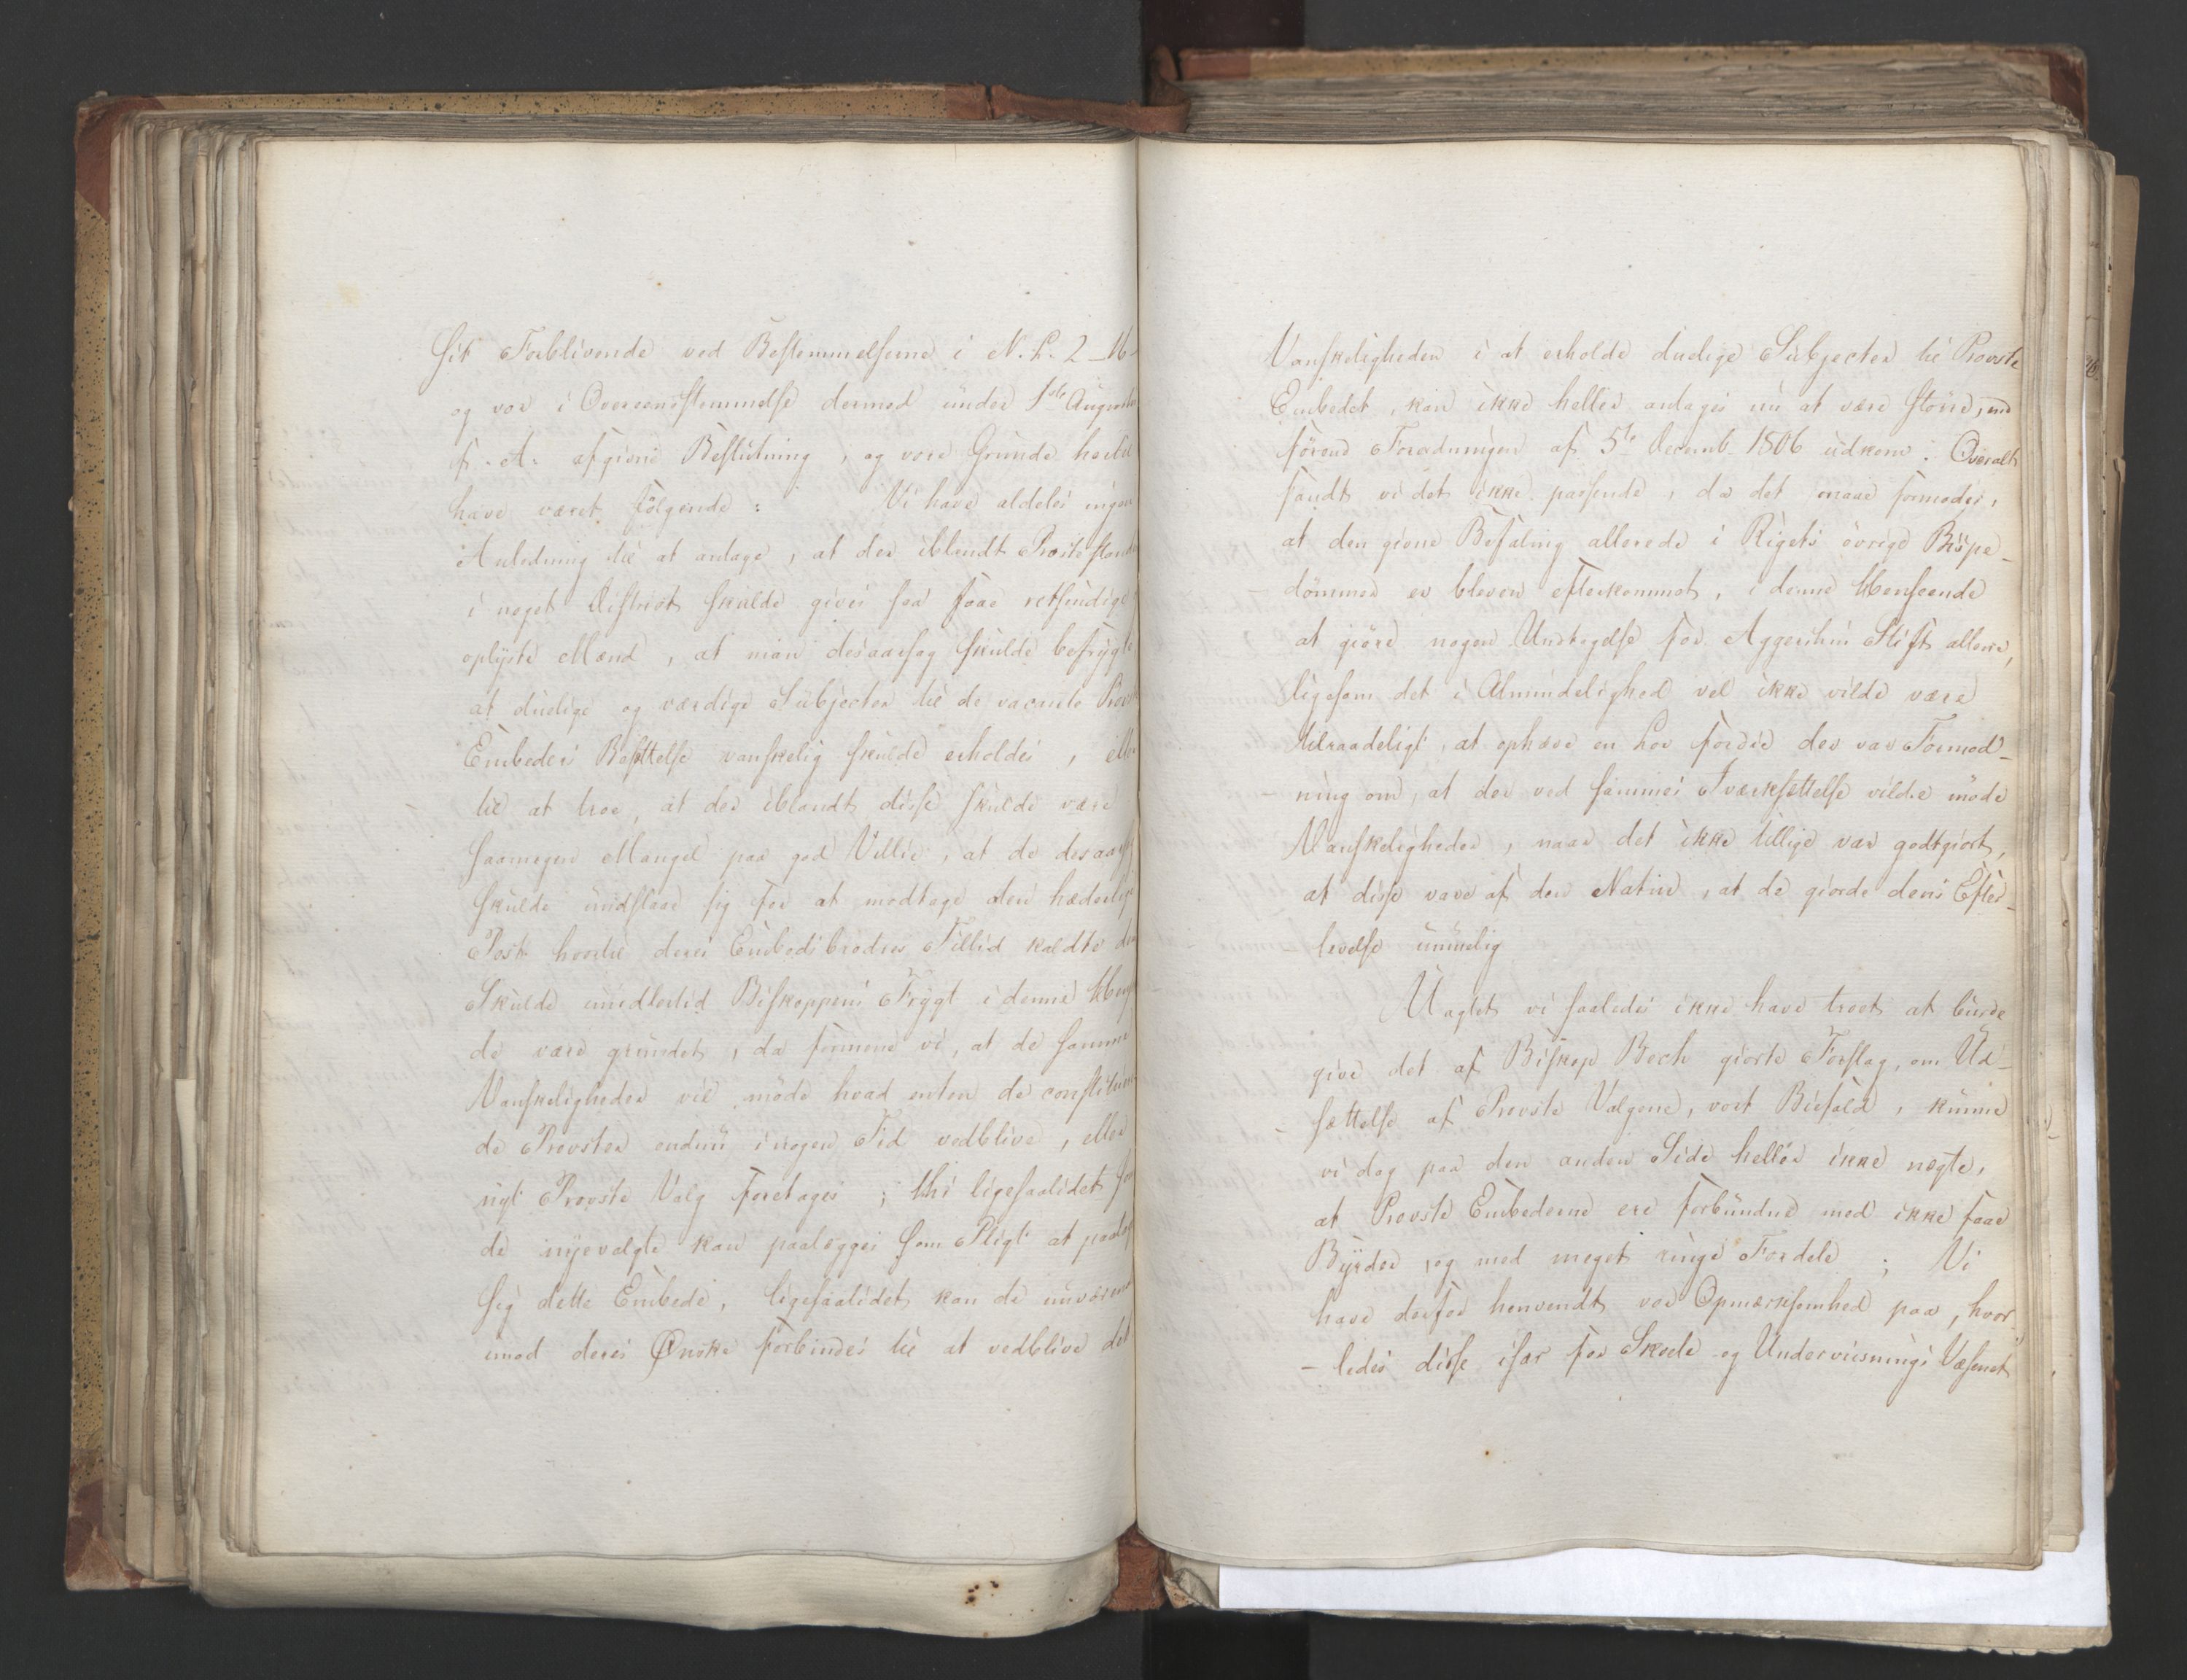 sit Forblivende ved Bestemmelserne i N. L. 2-16-
og vor i Overeensstemmelse dermed under 1ste August
f. A. afgivne Beslutning, og vore Grunde hertil
have været følgende: Vi have aldeles ingen
Anledning til at antage, at der iblandt Præstestanden
i noget District skulde gives saa faae retsindige
oplyste Mænd, at man desaarsag skulde befrygte,
at duelige og værdige Subjecter til de vacante Provste
Embeders Besættelse vanskelig skulde erholdes, eller
til at troe, at der iblandt disse skulde være
saamegen Mangel paa god Villie, at de desaarsag
skulde undslaae sig for at modtage den hæderlige
Post hvortil deres Embedsbrødres Tillid kaldte dem
Skulde imidlertid Biskoppens Frygt i denne Henseen
de være grundet, da formene vi, at de samme
Vanskeligheder vil møde hvad enten de constitueren
de Provster endnu i nogen Tid vedblive, eller
nyt Provste Valg foretages; thi ligesaalidet som
de nyevalgte kan paalægges som Pligt at paatage
sig dette Embede, ligesaalidet kan de nuværende
imod deres Ønske forbindes til at vedblive det
Vanskeligheden i at erholde duelige Subjecter til Provste
Embedet, kan ikke heller antages nu at være større, end
førend Forordningen af 5te Decemb. 1806 udkom. Overalt
fandt vi det ikke passende, da det maae formodes,
at den givne Befaling allerede i Rigets övrige Bispe-
- dömmer er bleven efterkommet, i denne Henseende
at giöre nogen Undtagelse for Aggershuus Stift allene,
ligesom det i Almindelighed vel ikke vilde være
tilraadeligt, at ophæve en Lov fordie der var Formod-
- ning om, at der ved sammes Iværksættelse vilde möde
Vanskeligheder, naar det ikke tillige var godtgiort,
at disse vare af den Natur, at de giorde dens Efter-
- levelse umuelig
Uagtet vi saaledes ikke have troet at burde
give det af Biskop Bech giorte Forslag, om Ud-
- sættelse af Provste Valgene, vort Biefald, kunne
vi dog paa den anden Side heller ikke negte,
at Provste Embederne ere forbundne med ikke faae
Byrder, og med meget ringe Fordele; Vi
have derfor henvendt vor Opmærksomhed paa, hvor-
- ledes disse især for Skole og Underviisnings Væsenet